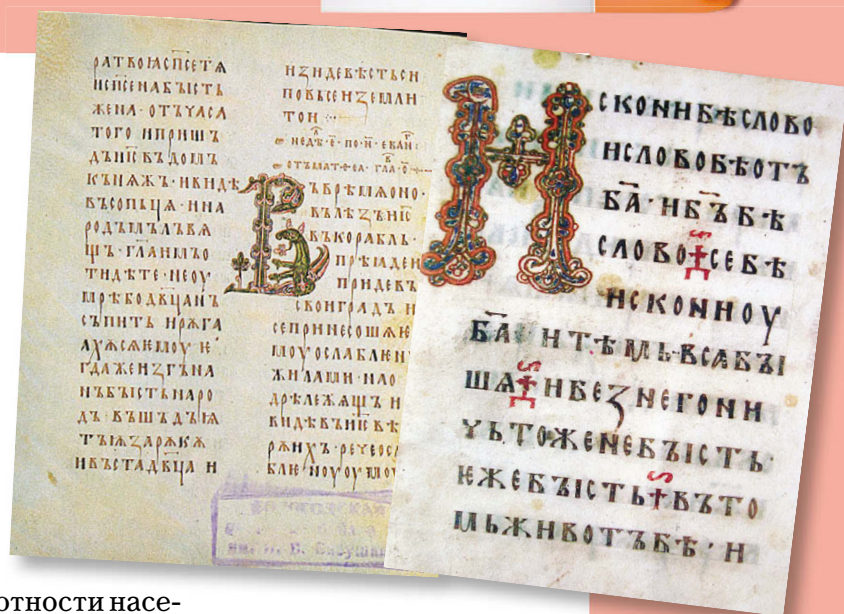 ратвоꙗспсетѧ
испсенабъість
жена·отъчаса
того ипришъ
дъис въдомъ
кънѧжь·ивидѣ
въсопьцѧ·ина
родъмълъвѧ
щь·глаимъо
тидѣте·неоу
мрѣбодвцанъ
съпить ирѫга
ахѫсѧѥмоу ѥ
гдажеизгъна
нъбъістьнаро
дъ въшьдъꙗ
тъꙗзарѫкѫ
ивъстадвца и
изидевѣстьси
повьсеиземли
тои
недѣ·е·по·н·еван
отъматѳеа·гла·о
Въврѣмѧоно·
вълѣзъис
въкорабль·
прѣиде
придевъ
своиградъ и
сепринесошѧѥ
моуослаблен
жилами·нао
дрѣлежѧщь и
видѣвъисвѣ
рѫихъ·речеосл
блѥноуоумоу
Искони бѣ слово
ислово бѣотъ
ба·ибъ бѣ
слово се бѣ
искони оу
ба итѣмь всѧ бъı
шѧ ибез негони
чьтоженебъıсть·
ѥжебъıсть въто
мьживотъ бѣ·и
отности насе-